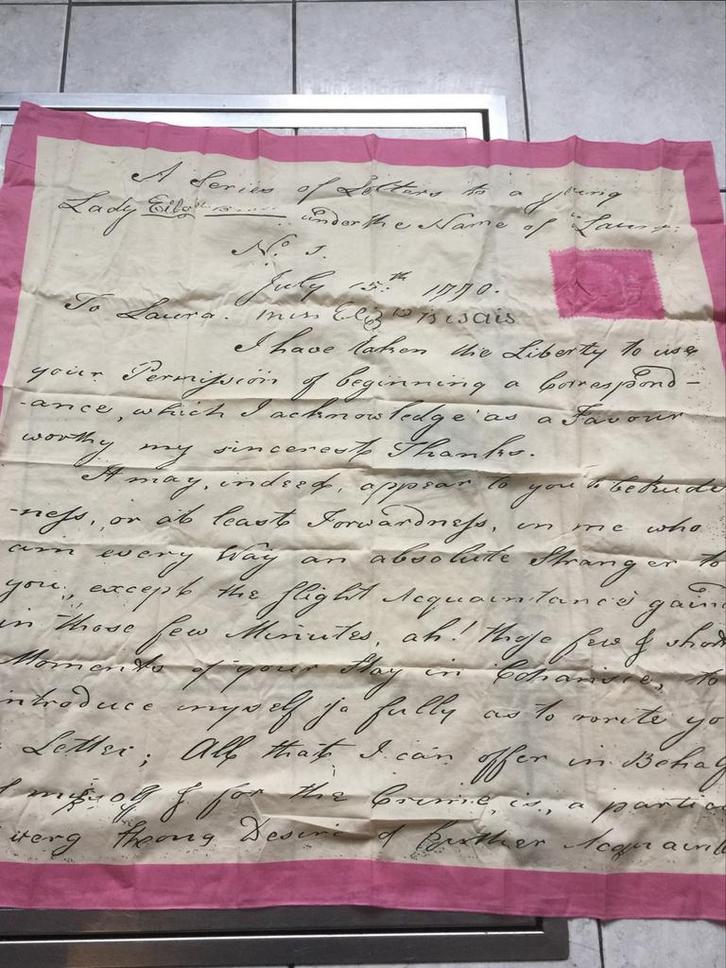 A Series of Letters to a young
Lady Eliz under the Name of "Laura
No. 1.
July 15th 1770.
To Laura. Miss Eliz
I have taken the Liberty to use
your Permission of beginning a Correspond-
-ance, which I acknowledge as a Favour
worthy my sincerest Thanks.
It may, indeed, appear to you to be rude
-ness, or at least Forwardness, in me who
am every Way an absolute Stranger to
you, except the slight Acquaintance gain
in those few Minutes, ah! those few & short
Moments of your Stay in to
introduce myself so fully as to write yo
Letter; All that I can offer in Behalf
of & for the Crime, is, a partic
Desire of further Acquaint